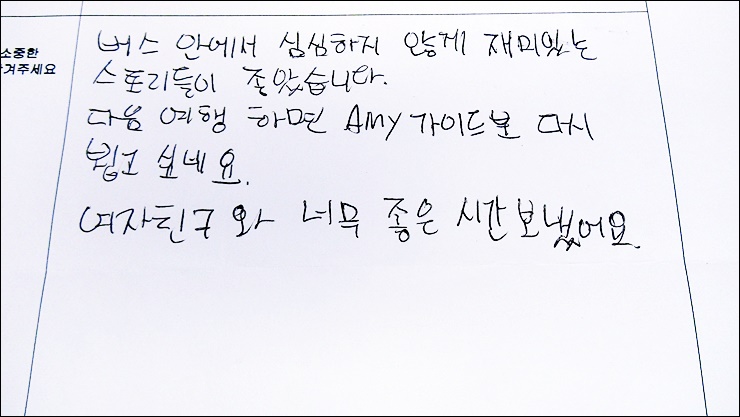 소중한
겨주세요
버스 안에서 심심하지 않게 재미있는
스토리들이 좋았습니다.
다음 여행 하면 AMY 가이드로 다시
뵙고 싶네요.
여자친구와 너무 좋은 시간 보냈어요.